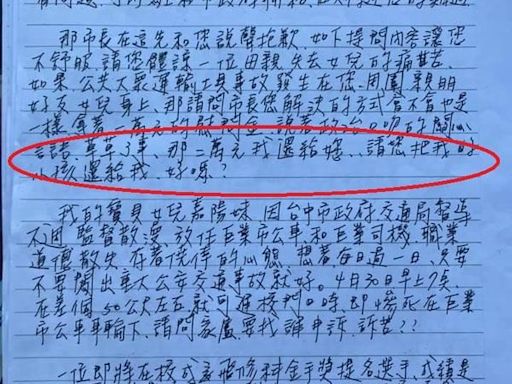 那市長在這先和您說聲抱歉，如下提問內容讓您
不舒服，請您體諒一位母親失去女兒的痛苦
如果公共大眾運輸工具事故發生在您周圍親朋
好友女兒身上，那請問市長您解決的方式會不會也是
一樣拿著二萬元的慰問金、說著政治口吻的關心
言語、草草了事、那二萬元我還給您、請您把我的
小孩還給我、好嗎？
我的寶貝女兒嘉陽妹、因台中市政府交通局督導
不周、監督散漫、放任巨業市公車、和巨業司機、職業
道德散失、存著僥倖的心態、想著每日過一日、只要
不要鬧出重大公安交通事故就好。4月30日早上7點、
在差個50公尺左右就可進校門口時、即慘死在巨業
市公車車輪下、請問家屬要找誰申訴、訴苦??
一位即將在校
金手獎提名選手、成績是